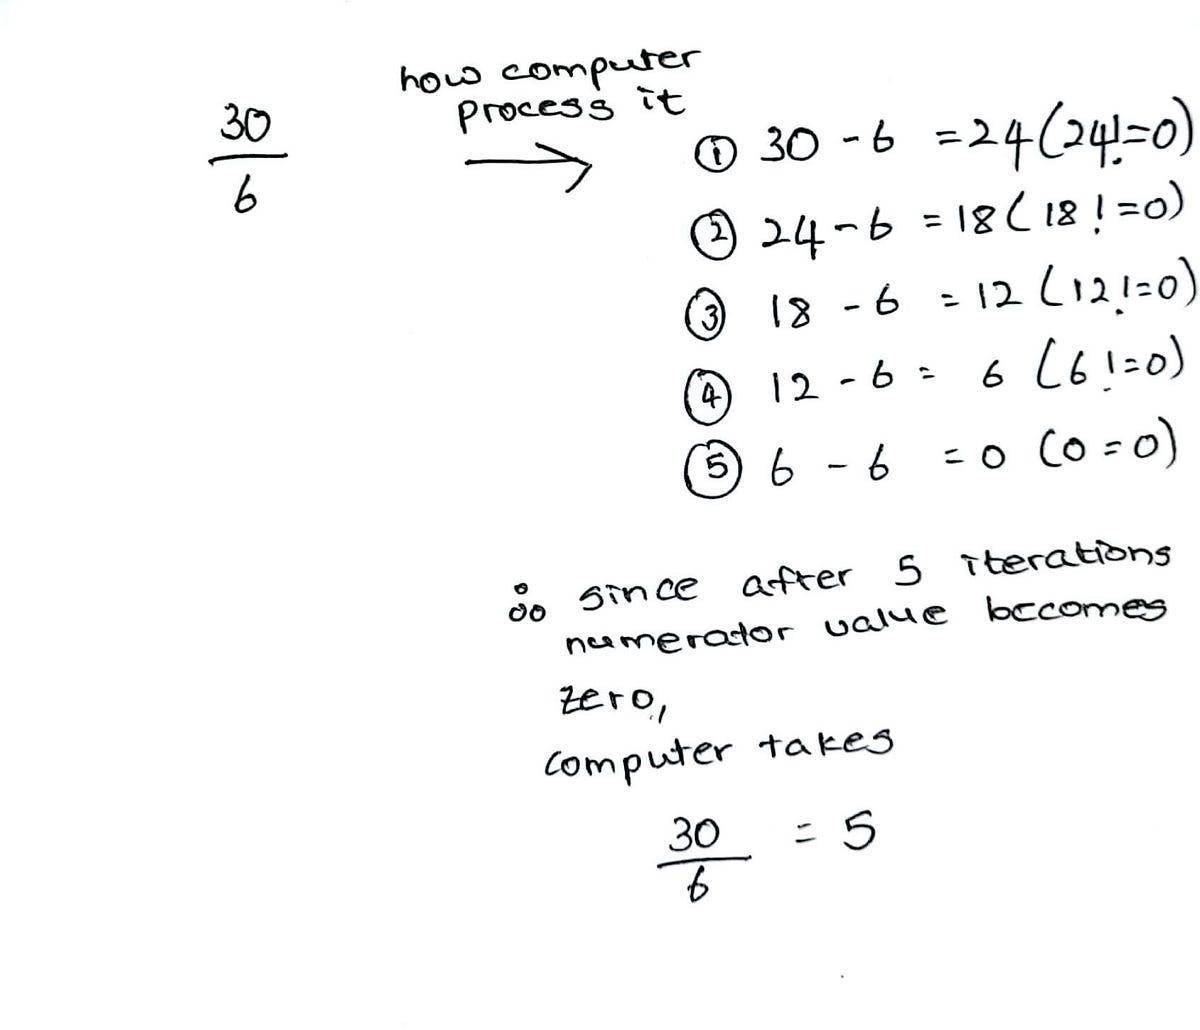 how computer
process it
30
6
① 30 - 6 = 24 (24!=0)
② 24 - 6 = 18 ( 18 ! =0)
③ 18 - 6 = 12 (12!=0)
④ 12 - 6 = 6 (6 !=0)
⑤ 6 - 6 = 0 (0 = 0)
∴ since after 5 iterations
numerator value becomes
zero,
computer takes
30 = 5
6